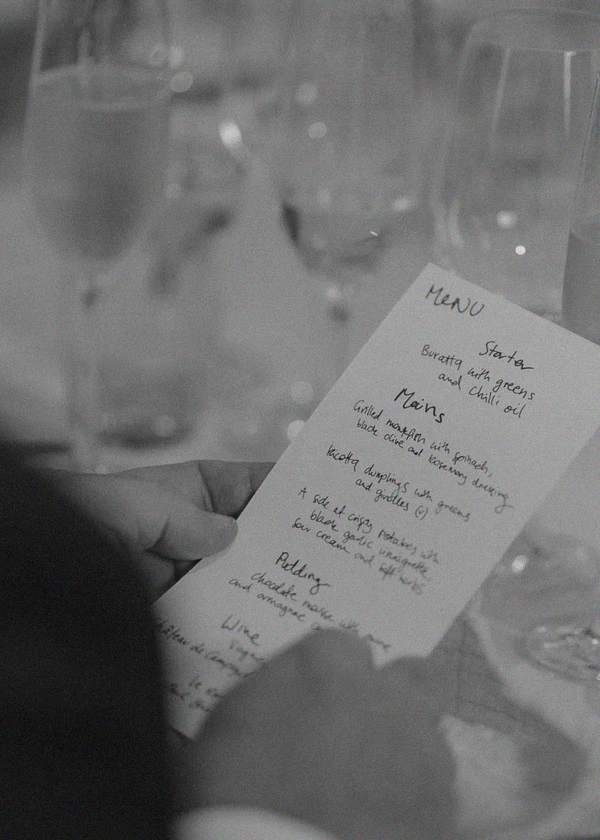 MENU
Starter
Buratta with greens
and chilli oil
Mains
Grilled monkfish with spinach,
black olive and rosemary dressing
Ricotta dumplings with greens
and girolles (v)
A side of crispy potatoes with
black garlic vinaigrette
sour cream and soft herbs
Pudding
chocolate
and armagnac
Wine
Château de